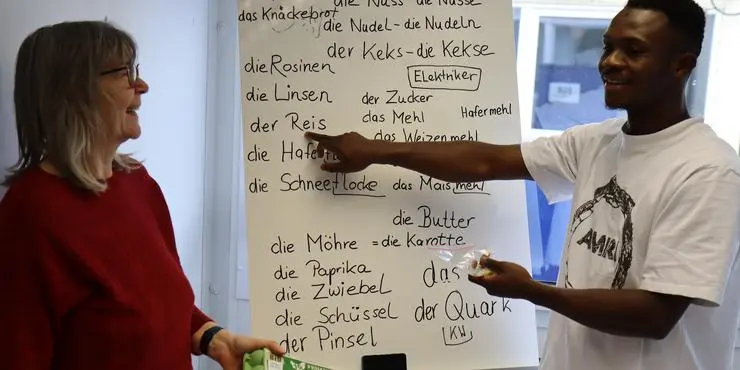 die Nuss - die Nüsse
das Knäckebrot
die Nudel - die Nudeln
der Keks - die Kekse
die Rosinen
Elektriker
die Linsen
der Zucker
der Reis
das Mehl
Hafermehl
das Weizenmehl
die
die Schneeflocke
das Maismehl
die Butter
die Möhre = die Karotte
die Paprika
das
die Zwiebel
die Schüssel
der Quark
der Pinsel
KW